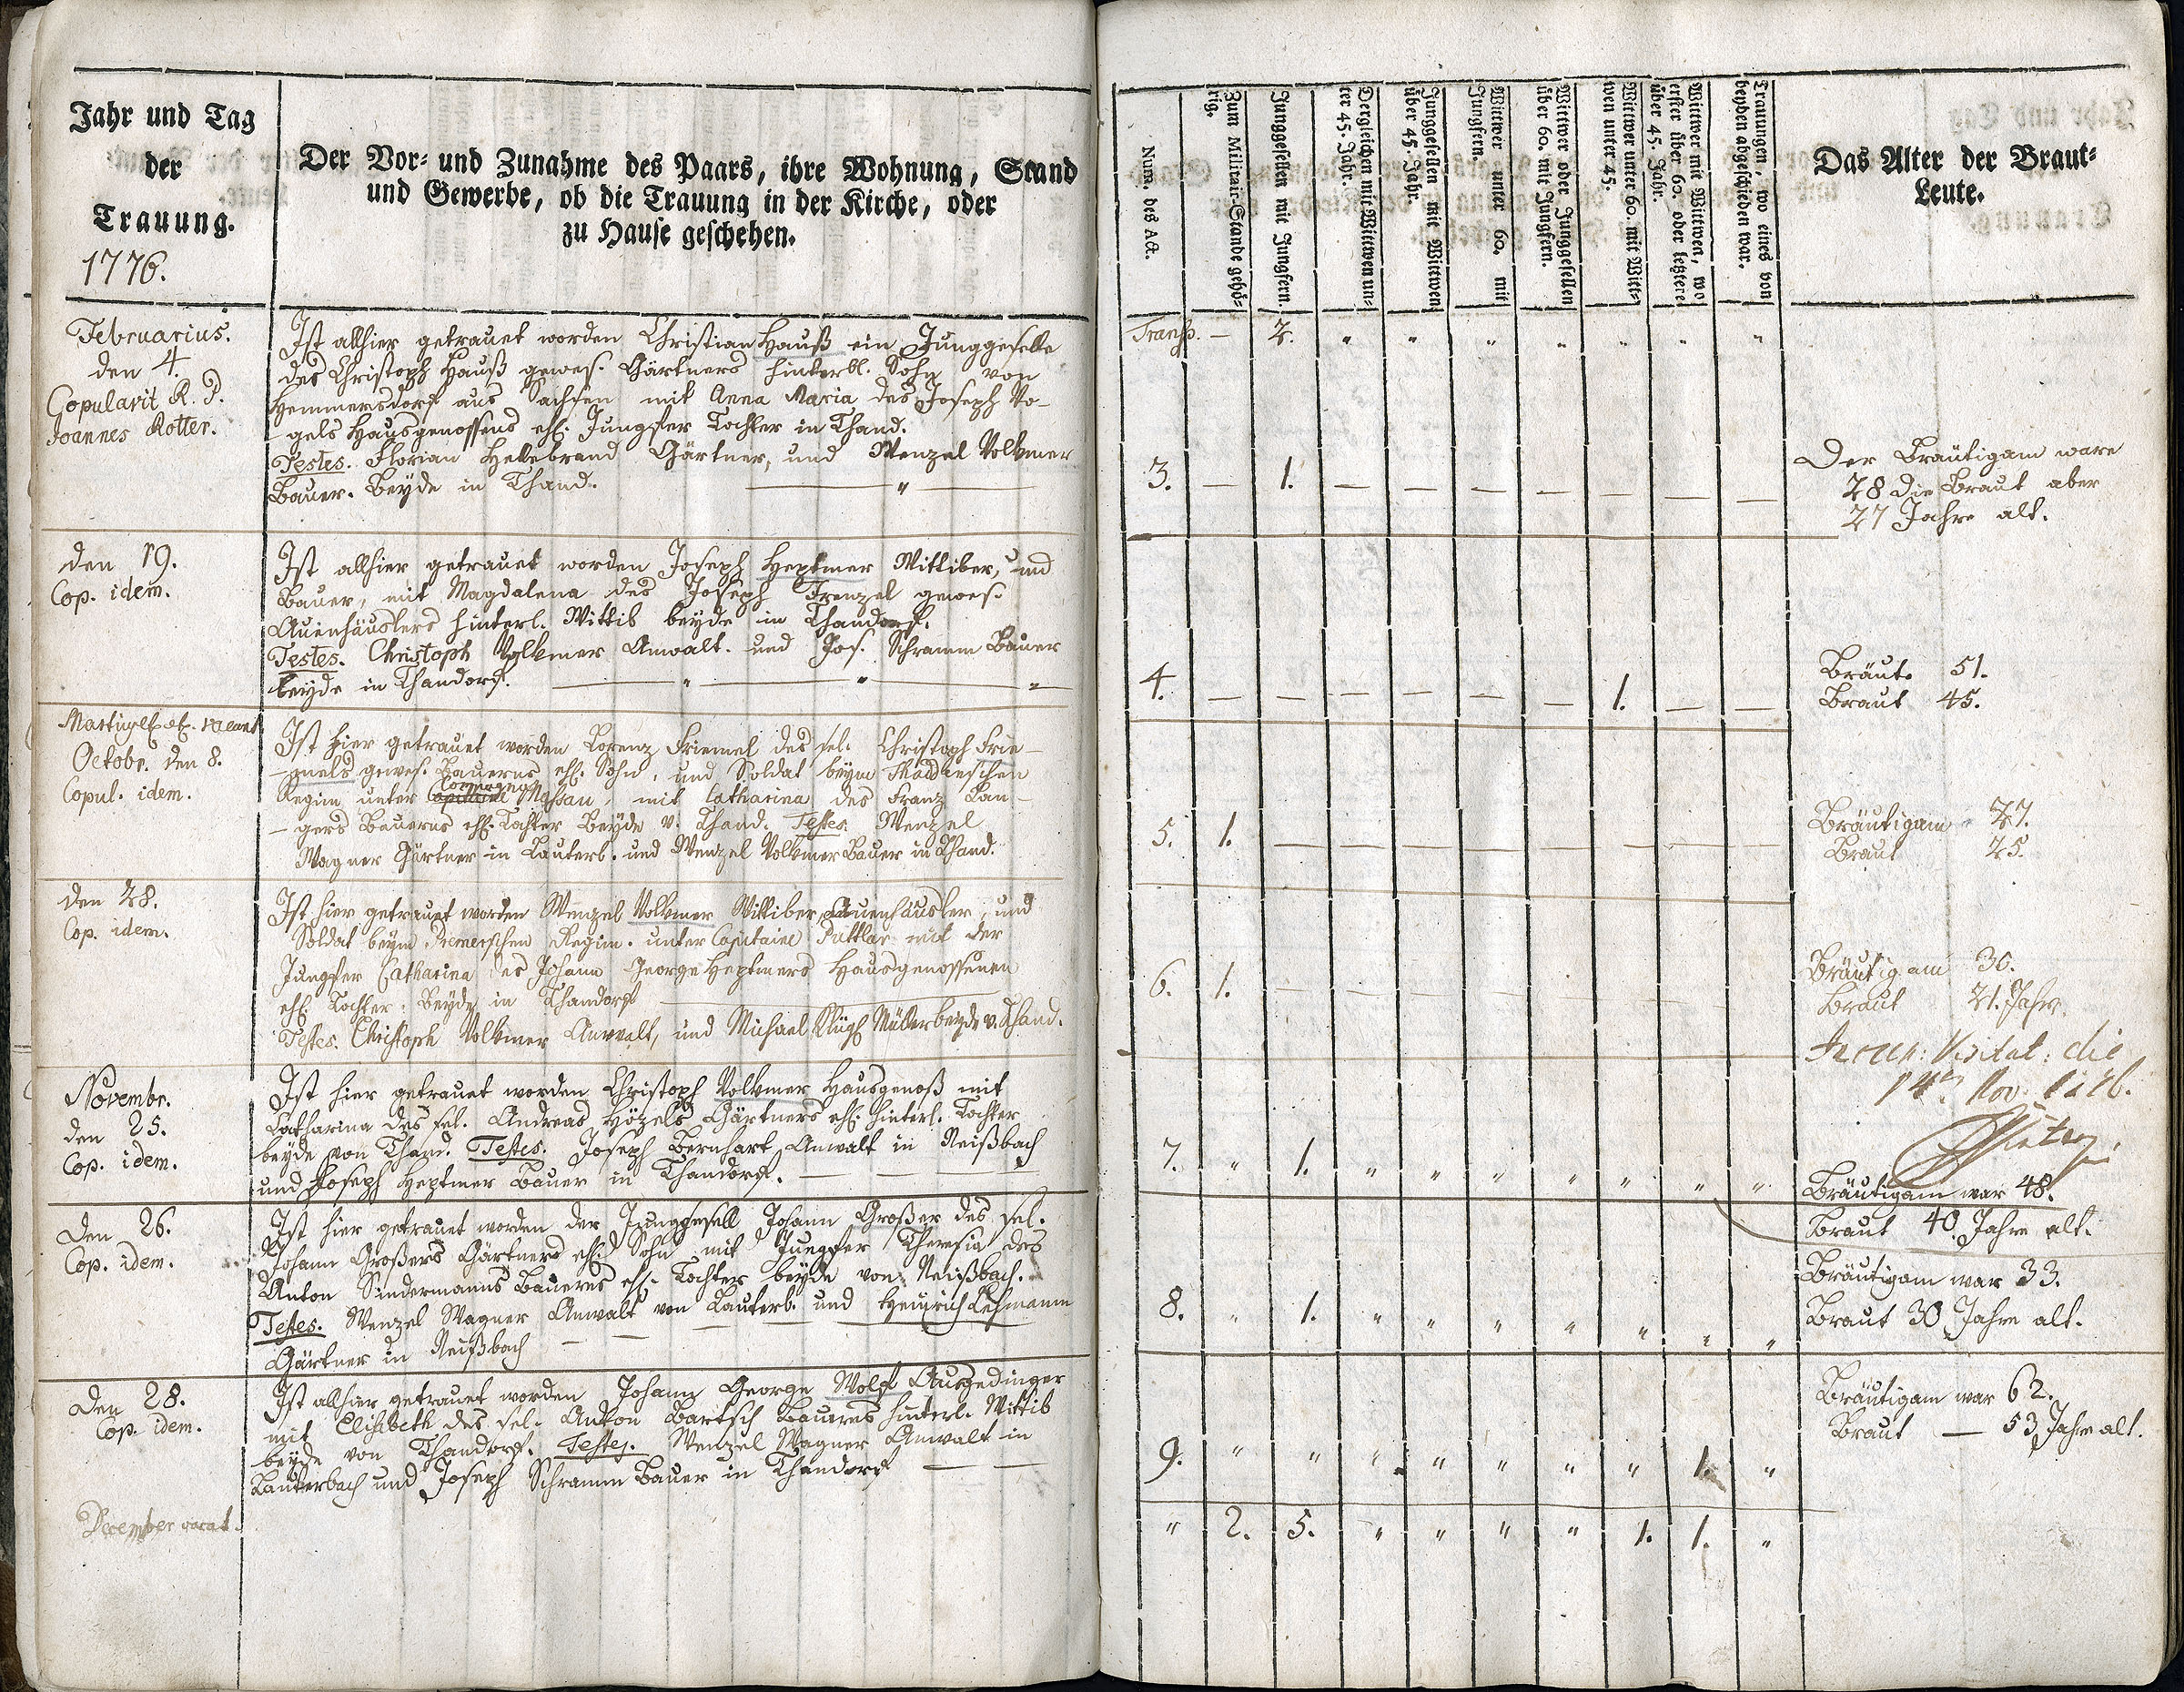 Jahr und Tag
der
Trauung.
1776.
Der Vor- und Zunahme des Paars, ihre Wohnung, Stand
und Gewerbe, ob die Trauung in der Kirche, oder
zu Hause geschehen.
Februarius.
den 4.
Copulavit R. D.
Joannes Rotter.
Ist allhier getrauet worden Christian Hauß ein Junggeselle
des Christoph Hauß gewes. Gärtners hinterbl. Sohn von
Hemmersdorf aus Sachsen mit Anna Maria des Joseph Vo-
gels Hausgenossens ehl. Jungfer Tochter in Thand.
Testes. Florian Hellebrand Gärtner, und Wenzel Volkmer
Bauer. Beyde in Thand.
den 19.
Cop. idem.
Ist allhier getrauet worden Joseph Heptner Wittiber, und
Bauer, mit Magdalena des Joseph Frenzel gewes.
Auenhäuslers hinterl. Wittib beyde in Thandorf.
Testes. Christoph Volkmer Anwalt. und Jos. Schramm Bauer
beyde in Thandorf.
Octobr. den 8.
Copul. idem.
Ist hier getrauet worden Lorenz Friemel des sel. Christoph Frie-
-mels gewes. Bauerns ehl. Sohn, und Soldat beym Thaddenschen
Regim. unter Massau, mit Catharina des Franz Lan-
-gers Bauerns ehl. Tochter Beyde v. Thand. Testes. Wenzel
Wagner Gärtner in Lauterb. und Wenzel Volkmer Bauer in Thand.
den 28.
Cop. idem.
Ist hier getrauet worden Wenzel Volkmer Wittiber, Auenhäusler, und
Soldat beym Regim. unter Capitaine Puttlar mit der
Jungfer Catharina des Johann George Heptners Hausgenossenen
ehl. Tochter. Beyde in Thandorf
Testes. Christoph Volkmer Anwalt, und Michael Müller beyde v. Thand.
Novembr.
den 25.
Cop. idem.
Ist hier getrauet worden Christoph Volkmer Hausgenoß mit
Catharina des sel. Andreas Hözels Gärtners ehl. hinterl. Tochter
beyde von Thand. Testes. Joseph Bernhart Anwalt in Neißbach
und Joseph Heptner Bauer in Thandorf.
Den 26.
Cop. idem.
Ist hier getrauet worden der Junggesell Johann Großer des sel.
Johann Großers Gärtners ehl. Sohn mit Jungfer Theresia des
Anton Sindermanns Bauerns ehl. Tochter beyde von Neißbach.
Testes. Wenzel Wagner Anwalt von Lauterb. und Heinrich Lehmann
Gärtner in Neißbach
Den 28.
Cop. idem.
Ist allhier getrauet worden Johann George Wolf Ausgedinger
mit Elisabeth des sel. Anton Bartsch Bauerns hinterl. Wittib
beyde von Thandorf. Testes. Wenzel Wagner Anwalt in
Lauterbach und Joseph Schramm Bauer in Thandorf
December vacat.
Num. des Act.
Zum Militair-Stande gehö-
rig.
Junggesellen mit Jungfern.
Dergleichen mit Wittwen un-
ter 45. Jahr.
Junggesellen mit Wittwen
über 45. Jahr.
Wittwer unter 60. mit
Jungfern.
Wittwer oder Junggesellen
über 60. mit Jungfern.
Wittwer unter 60. mit Witt-
wen unter 45.
Wittwer mit Wittwen, wo
erster über 60. oder letztere
über 45. Jahr.
Trauungen, wo eines von
beyden abgeschieden war.
Das Alter der Braut-
Leute.
Transp. — 2. " " " " " " "
3. — 1. — — — — — — —
Der Bräutigam ware
28 die Braut aber
27 Jahre alt.
4. — — — — — — 1. — —
Bräut. 51.
Braut 45.
5. 1. — — — — — — — —
Bräutigam 27.
Braut 25.
6. 1. — — — — — — — —
Bräutigam 30.
Braut 21. Jahr.
Visitat: die
7. " 1. " " " " " " "
Bräutigam war 48.
Braut 40 Jahre alt.
8. " 1. " " " " " " "
Bräutigam war 33.
Braut 30 Jahre alt.
9. " " " " " " " 1. "
Bräutigam war 62.
Braut — 53 Jahre alt.
" 2. 5. " " " " 1. 1. "